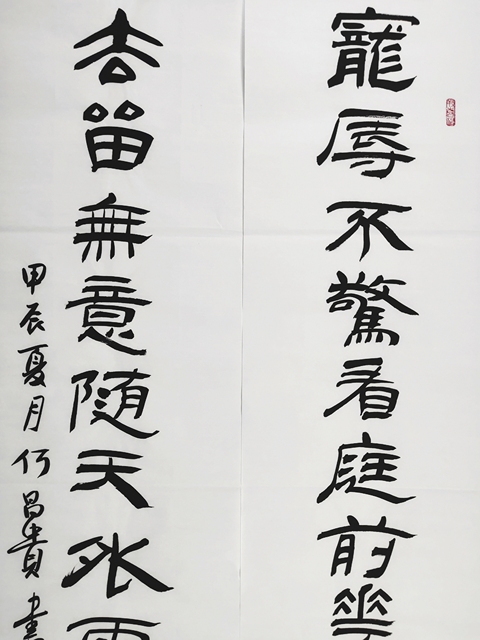 寵辱不驚看庭前花
去留無意隨天外雲
甲辰夏月何昌貴書